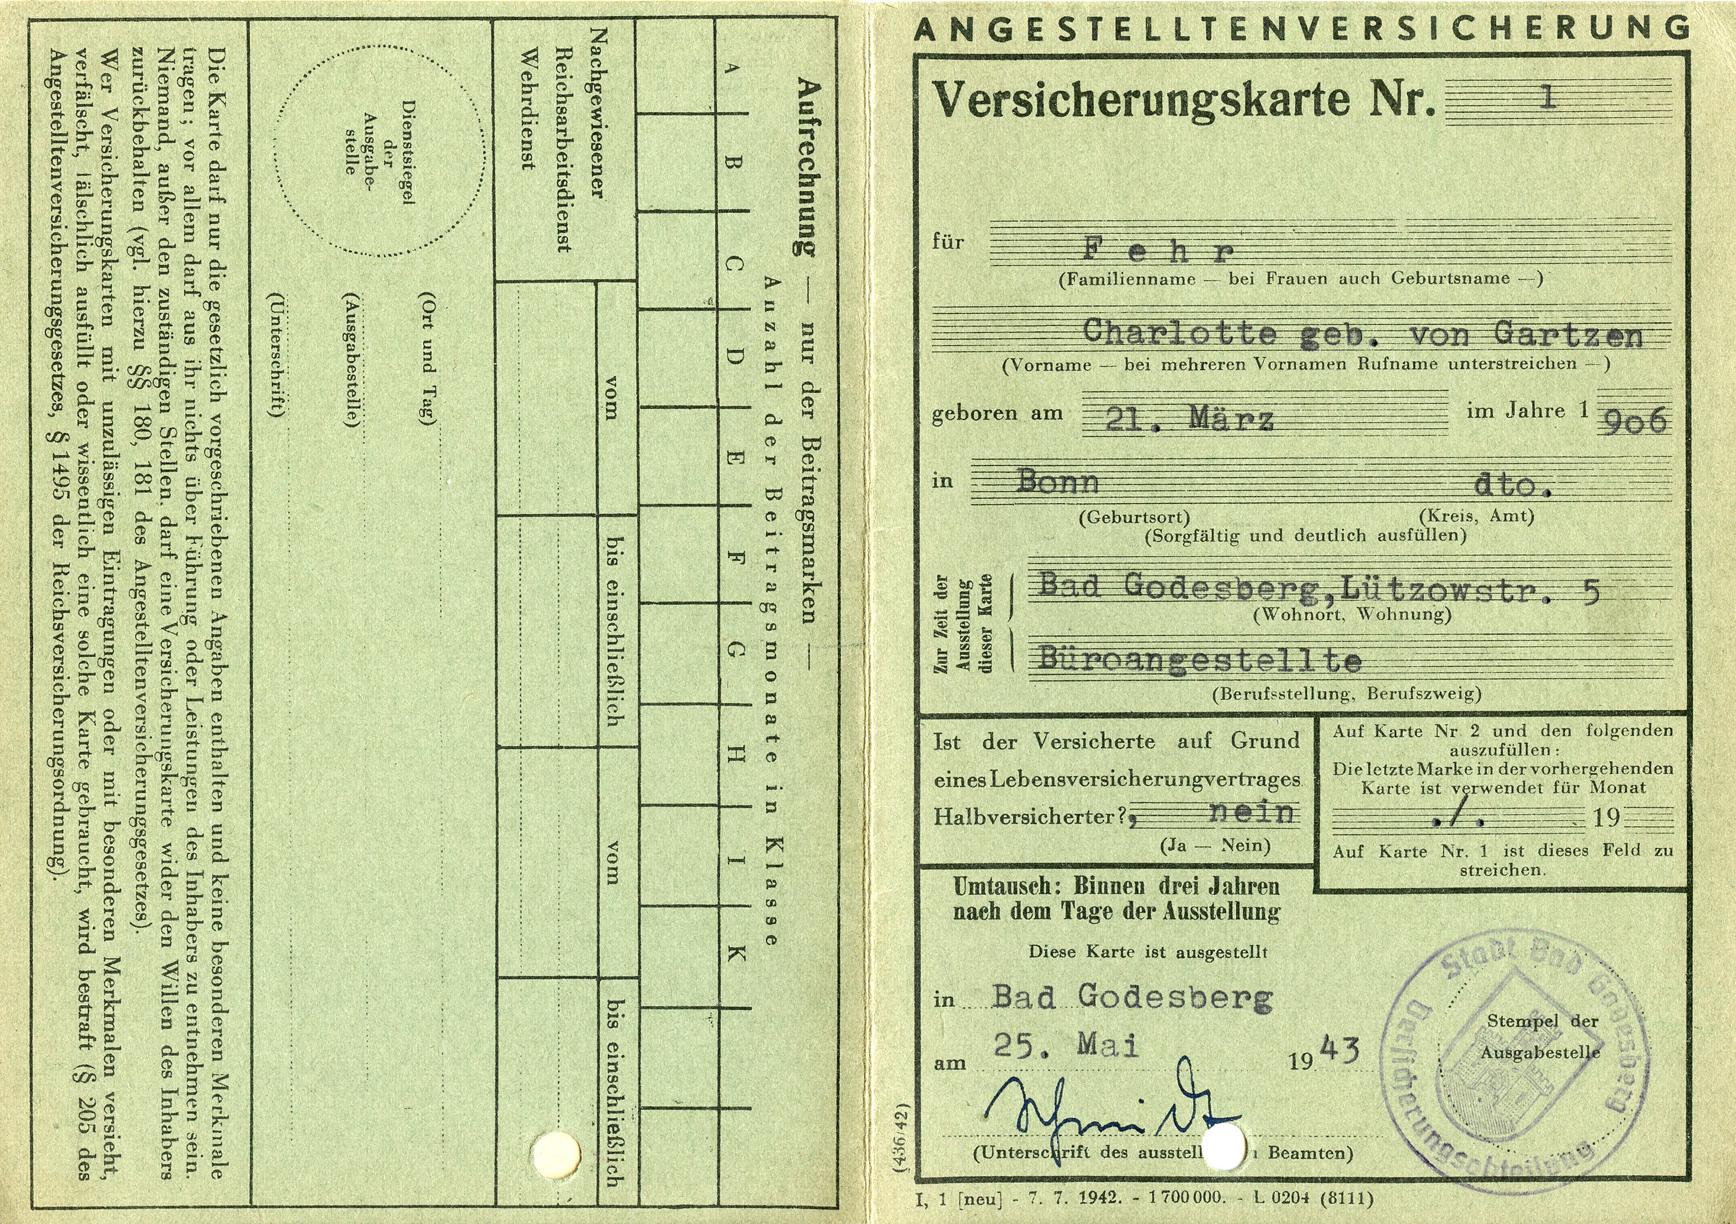 Aufrechnung — nur der Beitragsmarken —
Anzahl der Beitragsmonate in Klasse
A B C D E F G H I K
Nachgewiesener
Reichsarbeitsdienst
Wehrdienst
vom
bis einschließlich
vom
bis einschließlich
Dienstsiegel
der
Ausgabe-
stelle
(Ort und Tag)
(Ausgabestelle)
(Unterschrift)
Die Karte darf nur die gesetzlich vorgeschriebenen Angaben enthalten und keine besonderen Merkmale
tragen; vor allem darf aus ihr nichts über Führung oder Leistungen des Inhabers zu entnehmen sein.
Niemand, außer den zuständigen Stellen, darf eine Versicherungskarte wider den Willen des Inhabers
zurückbehalten (vgl. hierzu §§ 180, 181 des Angestelltenversicherungsgesetzes).
Wer Versicherungskarten mit unzulässigen Eintragungen oder mit besonderen Merkmalen versieht,
verfälscht, fälschlich ausfüllt oder wissentlich eine solche Karte gebraucht, wird bestraft (§ 205 des
Angestelltenversicherungsgesetzes, § 1495 der Reichsversicherungsordnung).
ANGESTELLTENVERSICHERUNG
Versicherungskarte Nr. 1
für Fehr
(Familienname — bei Frauen auch Geburtsname —)
Charlotte geb. von Gartzen
(Vorname — bei mehreren Vornamen Rufname unterstreichen —)
geboren am 21. März im Jahre 1906
in Bonn dto.
(Geburtsort) (Kreis, Amt)
(Sorgfältig und deutlich ausfüllen)
Zur Zeit der
Ausstellung
dieser Karte
Bad Godesberg,Lützowstr. 5
(Wohnort, Wohnung)
Büroangestellte
(Berufsstellung, Berufszweig)
Ist der Versicherte auf Grund
eines Lebensversicherungvertrages
Halbversicherter?, nein
(Ja — Nein)
Auf Karte Nr 2 und den folgenden
auszufüllen:
Die letzte Marke in der vorhergehenden
Karte ist verwendet für Monat
./. 19
Auf Karte Nr. 1 ist dieses Feld zu
streichen.
Umtausch: Binnen drei Jahren
nach dem Tage der Ausstellung
Diese Karte ist ausgestellt
in Bad Godesberg
am 25. Mai 1943
Schmidt
(Unterschrift des ausstell Beamten)
Stadt Bad Godesberg
Versicherungsabteilung
Stempel der
Ausgabestelle
(436/42)
I, 1 [neu] - 7. 7. 1942. - 1 700 000. - L 0204 (8111)